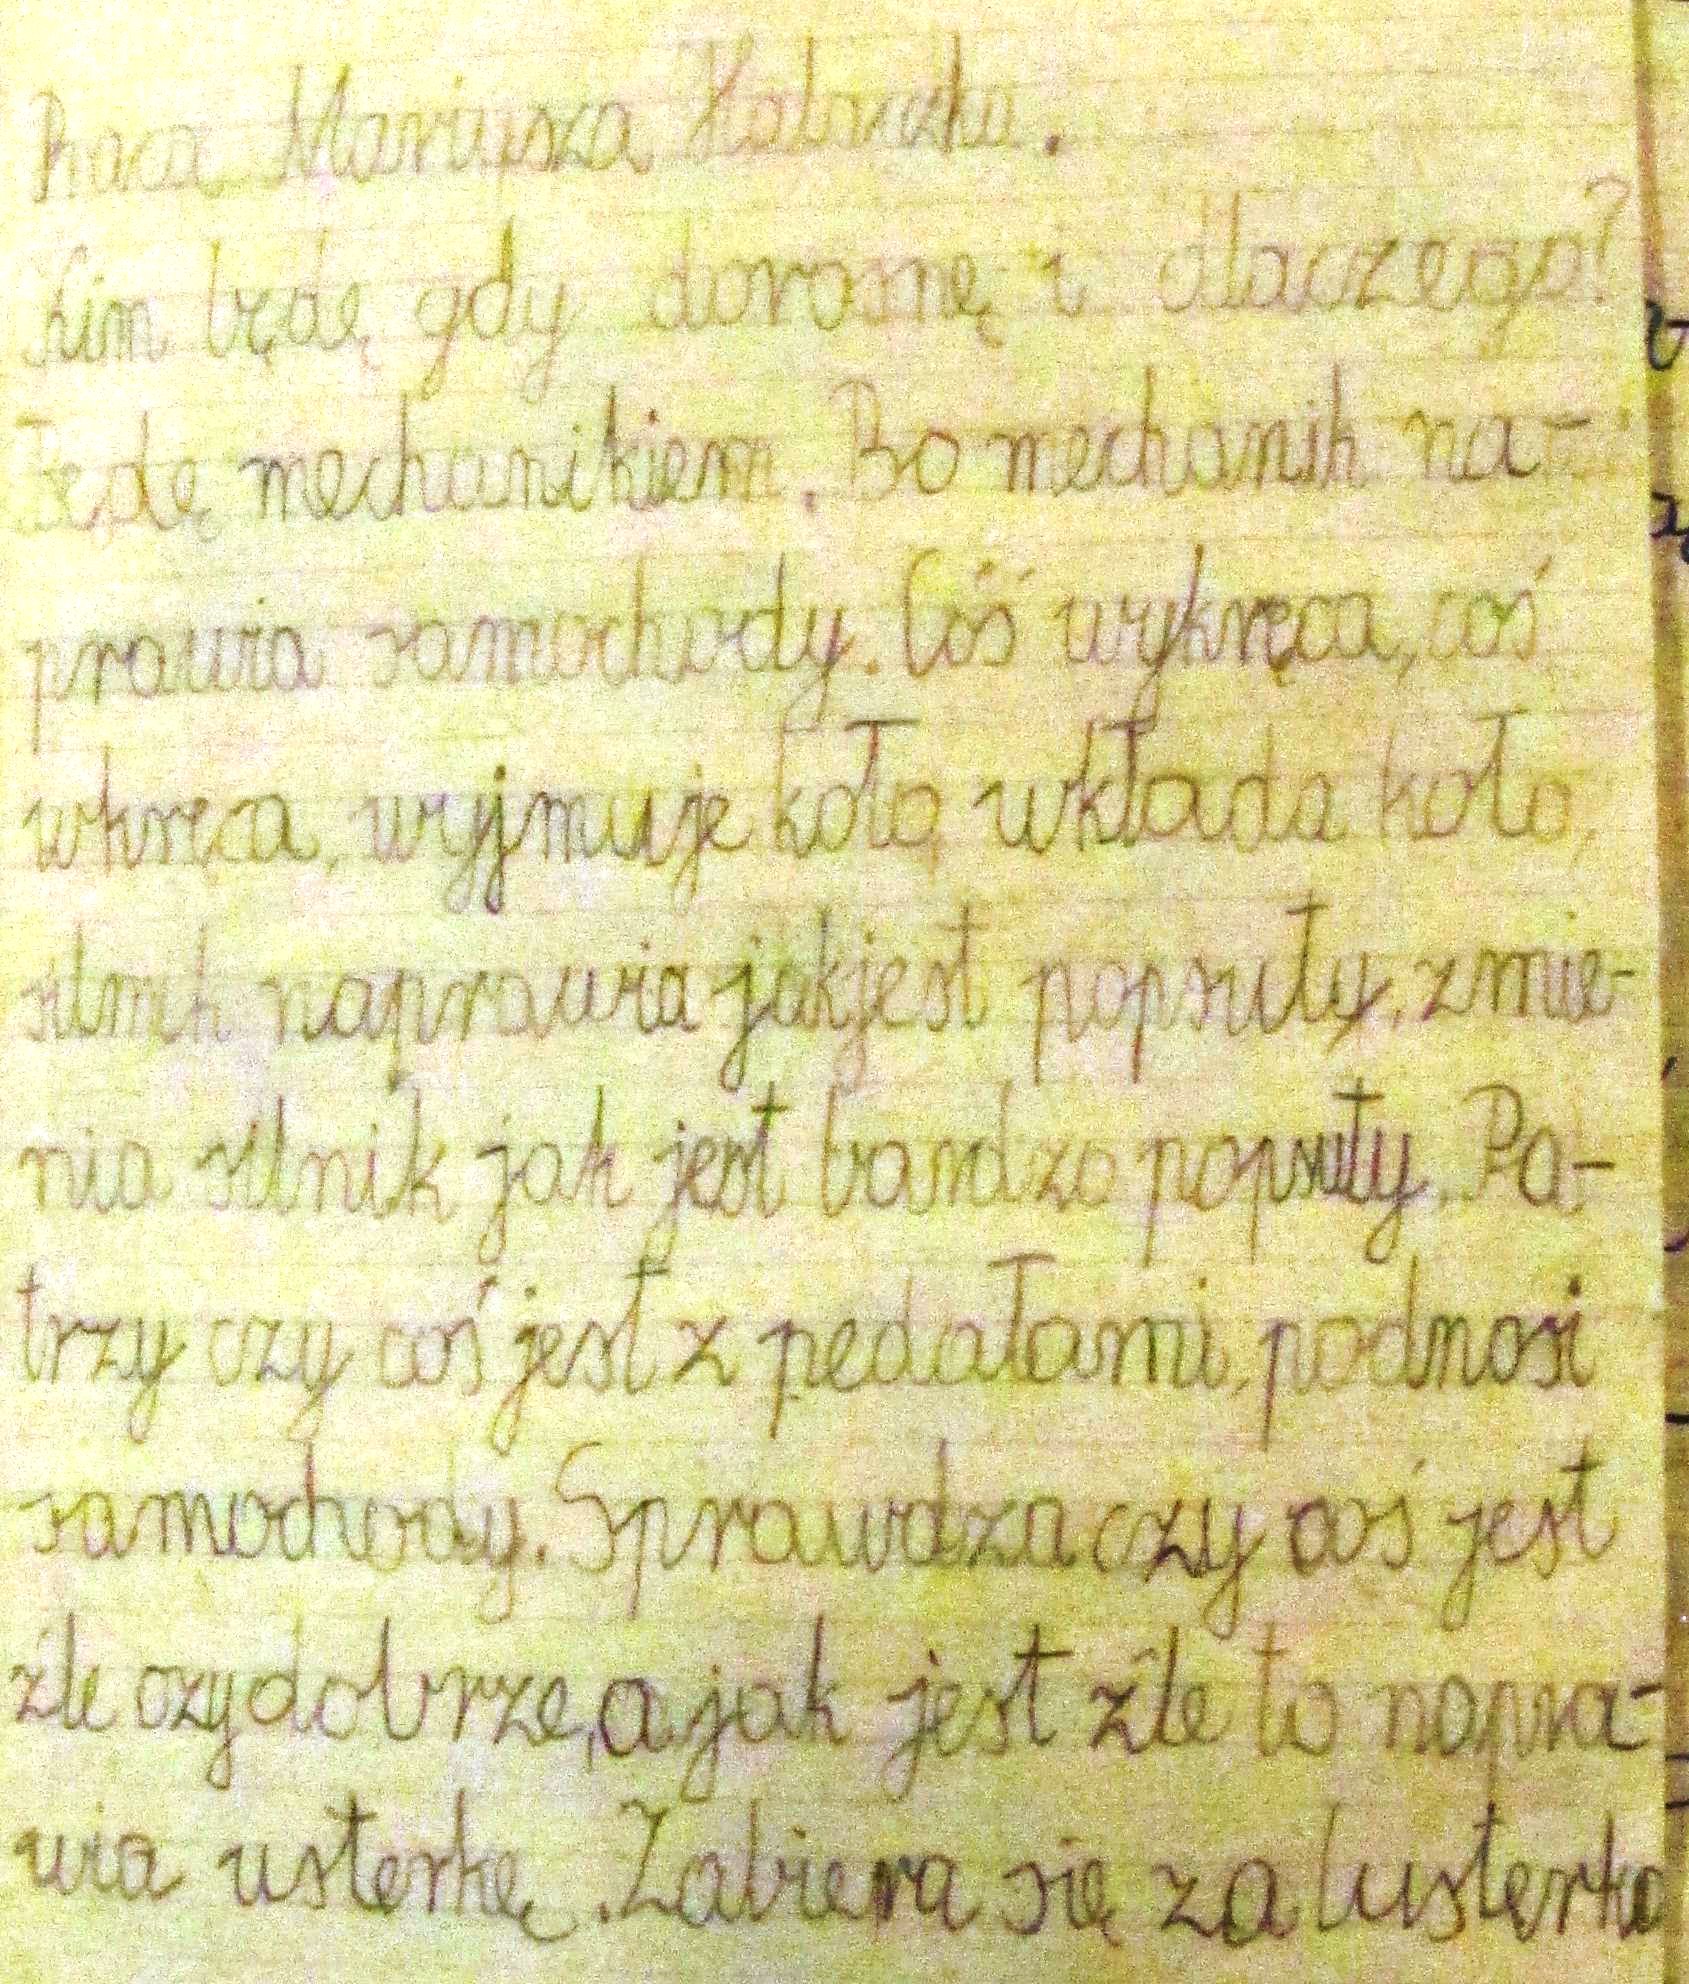 Praca Mariusza
Kim będę gdy dorosnę i dlaczego?
Będę mechanikiem. Bo mechanik na-
prawia samochody. Coś wykręca, coś
wkręca, wyjmuje koło, wkłada koło,
silnik naprawia jak jest popsuty, zmie-
nia silnik jak jest bardzo popsuty. Pa-
trzy czy coś jest z pedałami, podnosi
samochody. Sprawdza czy coś jest
źle czy dobrze, a jak jest źle to napra-
wia usterkę. Zabiera się za lusterka